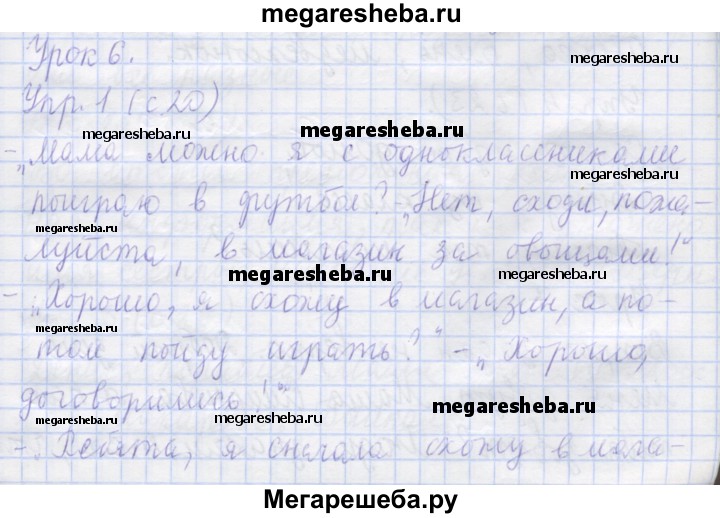 megaresheba.ru
Урок 6.
megaresheba.ru
Упр. 1 (с 20)
megaresheba.ru
megaresheba.ru
– „Мама можно я с одноклассниками
megaresheba.ru
поиграю в футбол? – „Нет, сходи, пожа-
луйста, в магазин за овощами!"
megaresheba.ru
megaresheba.ru
– „Хорошо, я схожу в магазин, а по-
megaresheba.ru
том пойду играть?" – „Хорошо,
договорились!"
megaresheba.ru
megaresheba.ru
– „Ребята, я сначала схожу в мага-
Мегарешеба.ру